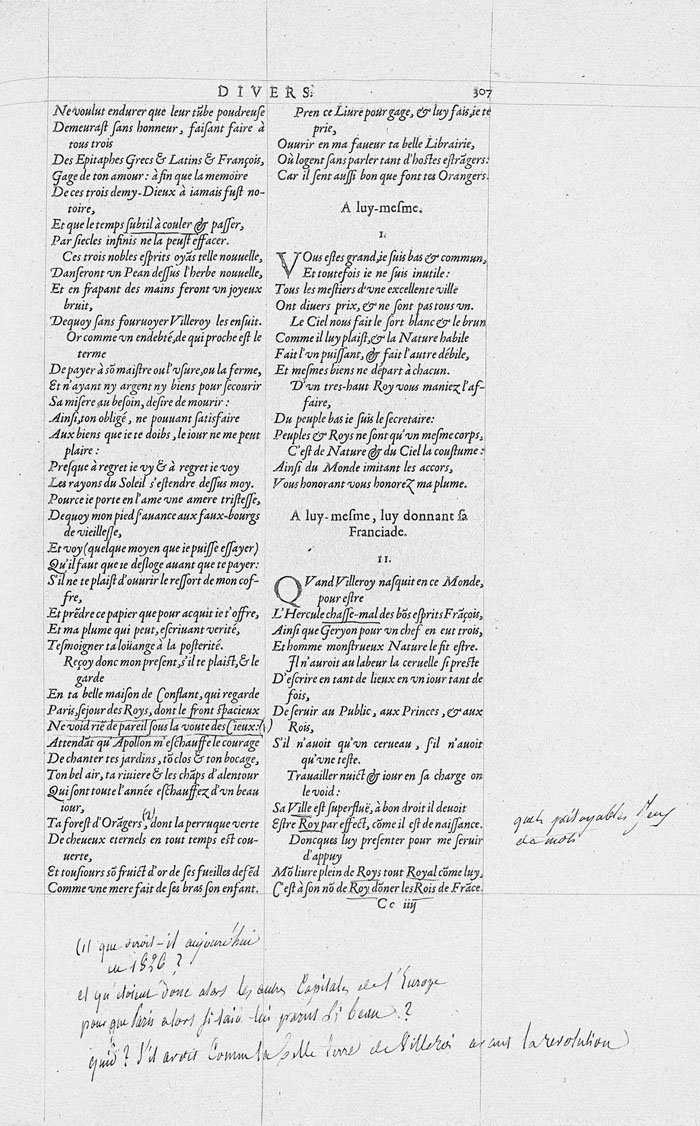 DIVERS.
307
Ne voulut endurer que leur tũbe poudreuse
Demeurast sans honneur, faisant faire à
tous trois
Des Epitaphes Grecs & Latins & François,
Gage de ton amour: à fin que la memoire
De ces trois demy-Dieux à iamais fust no-
toire,
Et que le temps subtil à couler & passer,
Par siecles infinis ne la peust effacer.
Ces trois nobles esprits oyãs telle nouuelle,
Danseront vn Pean dessus l'herbe nouuelle,
Et en frapant des mains feront vn joyeux
bruit,
Dequoy sans fouruoyer Villeroy les ensuit.
Or comme vn endebté, de qui proche est le
terme
De payer à sõ maistre ou l'vsure, ou la ferme,
Et n'ayant ny argent ny biens pour secourir
Sa misere au besoin, desire de mourir:
Ainsi, ton obligé, ne pouuant satisfaire
Aux biens que ie te doibs, le iour ne me peut
plaire:
Presque à regret ie vy & à regret ie voy
Les rayons du Soleil s'estendre dessus moy.
Pource ie porte en l'ame vne amere tristesse,
Dequoy mon pied s'auance aux faux-bourgs
de vieillesse,
Et voy (quelque moyen que ie puisse essayer)
Qu'il faut que ie desloge auant que te payer:
S'il ne te plaist d'ouurir le ressort de mon cof-
fre,
Et prẽdre ce papier que pour acquit ie t'offre,
Et ma plume qui peut, escriuant verité,
Tesmoigner ta loüange à la posterité.
Reçoy donc mon present, s'il te plaist, & le
garde
En ta belle maison de Conflant, qui regarde
Paris, sejour des Roys, dont le front spacieux
Ne void riẽ de pareil sous la voute des Cieux: (1)
Attendãt qu'Apollon m'eschauffe le courage
De chanter tes jardins, tõ clos & ton bocage,
Ton bel air, ta riuiere & les chãps d'alentour
Qui sont toute l'année eschauffez d'vn beau
iour,
Ta forest d'Orãgers (2), dont la perruque verte
De cheueux eternels en tout temps est cou-
uerte,
Et tousiours sõ fruict d'or de ses fueilles defẽd
Comme vne mere fait de ses bras son enfant.
Pren ce Liure pour gage, & luy fais, ie te
prie,
Ouurir en ma faueur ta belle Librairie,
Où logent sans parler tant d'hostes estrãgers:
Car il sent aussi bon que font tes Orangers.
A luy-mesme.
I.
VOus estes grand, ie suis bas & commun,
Et toutefois ie ne suis inutile:
Tous les mestiers d'vne excellente ville
Ont diuers prix, & ne sont pas tous vn.
Le Ciel nous fait le sort blanc & le brun
Comme il luy plaist, & la Nature habile
Fait l'vn puissant, & fait l'autre débile,
Et mesmes biens ne départ à chacun.
D'vn tres-haut Roy vous maniez l'af-
faire,
Du peuple bas ie suis le secretaire:
Peuples & Roys ne sont qu'vn mesme corps,
C'est de Nature & du Ciel la coustume:
Ainsi du Monde imitant les accors,
Vous honorant vous honorez ma plume.
A luy-mesme, luy donnant sa
Franciade.
II.
QVand Villeroy nasquit en ce Monde,
pour estre
L'Hercule chasse-mal des bõs esprits Frãçois,
Ainsi que Geryon pour vn chef en eut trois,
Et homme monstrueux Nature le fit estre.
Il n'auroit au labeur la ceruelle si preste
D'escrire en tant de lieux en vn iour tant de
fois,
De seruir au Public, aux Princes, & aux
Rois,
S'il n'auoit qu'vn cerueau, s'il n'auoit
qu'vne teste.
Trauailler nuict & iour en sa charge on
le void:
Sa Ville est superfluë, à bon droit il deuoit
Estre Roy par effect, cõme il est de naissance.
Doncques luy presenter pour me seruir
d'appuy
Mõ liure plein de Roys tout Royal cõme luy,
C'est à son nõ de Roy dõner les Rois de Frãce.
Cc iiij
quels pitoyables jeux
de mots
(1) que diroit-il aujourd'hui
en 1826?
et qu'etoient donc alors les autres Capitales de l'Europe
pour que Paris alors si laid lui parut si beau?
quid? S'il avoit Connu la belle terre de Villeroi avant la revolution